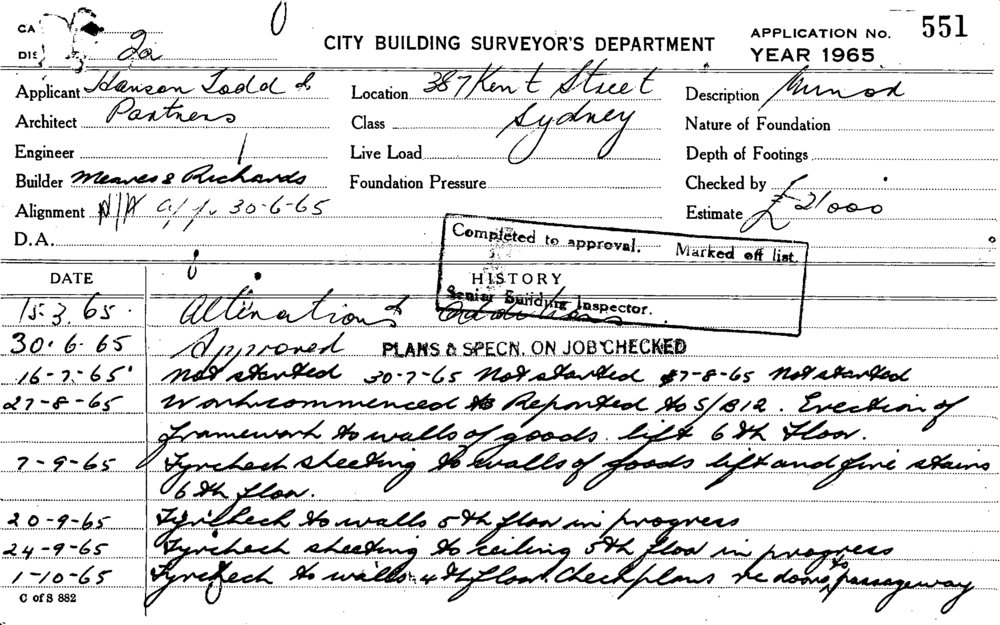 CA
551
CITY BUILDING SURVEYOR'S DEPARTMENT
APPLICATION No.
DIS 2a
YEAR 1965
Applicant Hanson Todd &
Location 387 Kent Street
Description Minor
Architect Partners
Class Sydney
Nature of Foundation
Engineer /
Live Load
Depth of Footings
Builder Meaves & Richards
Foundation Pressure
Checked by
Alignment N/A 30-6-65
Estimate £21000
D.A.
Completed to approval. Marked off list.
Senior Building Inspector.
DATE HISTORY
15.3.65 Alterations & Additions
30.6.65 Approved PLANS & SPECN. ON JOB CHECKED
16-7-65 Not started 30-7-65 Not started 7-8-65 Not started
27-8-65 Work commenced Reported to S/B12. Erection of
framework to walls of goods lift 6th Floor.
7-9-65 Fyrchech sheeting to walls of goods lift and fire stairs
6th floor.
20-9-65 Fyrchech to walls 5th floor in progress
24-9-65 Fyrchech sheeting to ceiling 5th floor in progress
1-10-65 Fyrchech to walls 4th floor. Check plans re doors to passageway
C of S 882